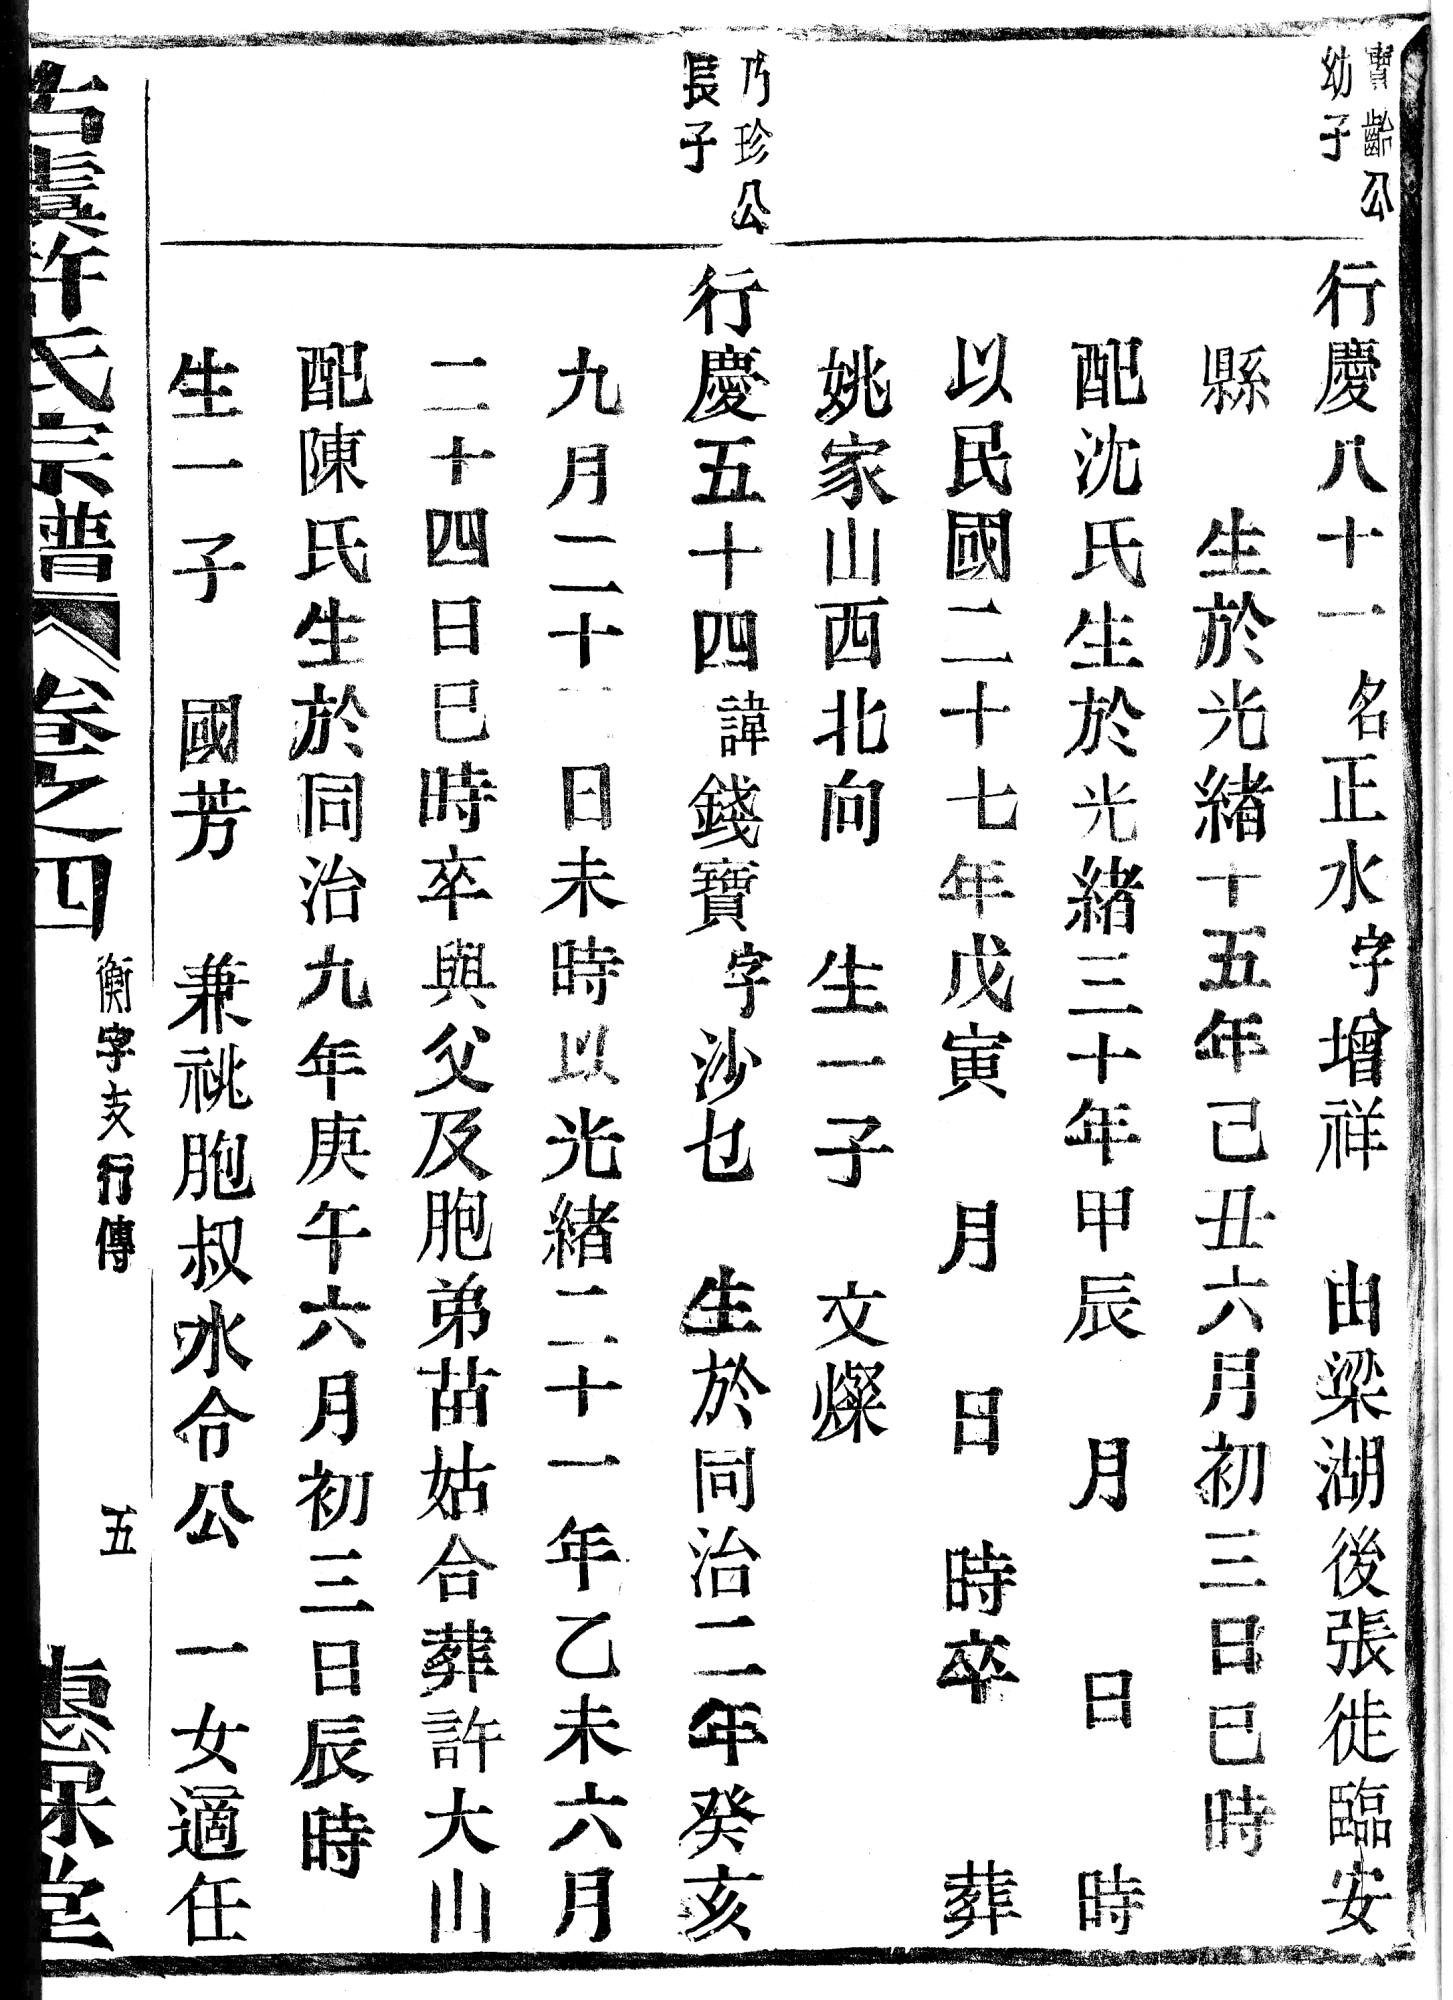 寶齡公
幼子
行慶八十一名正水字增祥 由梁湖後張徙臨安
縣 生於光緒十五年己丑六月初三日巳時
配沈氏生於光緒三十年甲辰 月 日 時
以民國二十七年戊寅 月 日 時卒 葬
姚家山西北向 生一子 文燦
乃珍公
長子
行慶五十四諱錢寶字沙乜 生於同治二年癸亥
九月二十一日未時以光緒二十一年乙未六月
二十四日巳時卒與父及胞弟苗姑合葬許大山
配陳氏生於同治九年庚午六月初三日辰時
生一子 國芳 兼祧胞叔水令公 一女適任
古虞許氏宗譜 卷之四 衡字支行傳 五 惠保堂